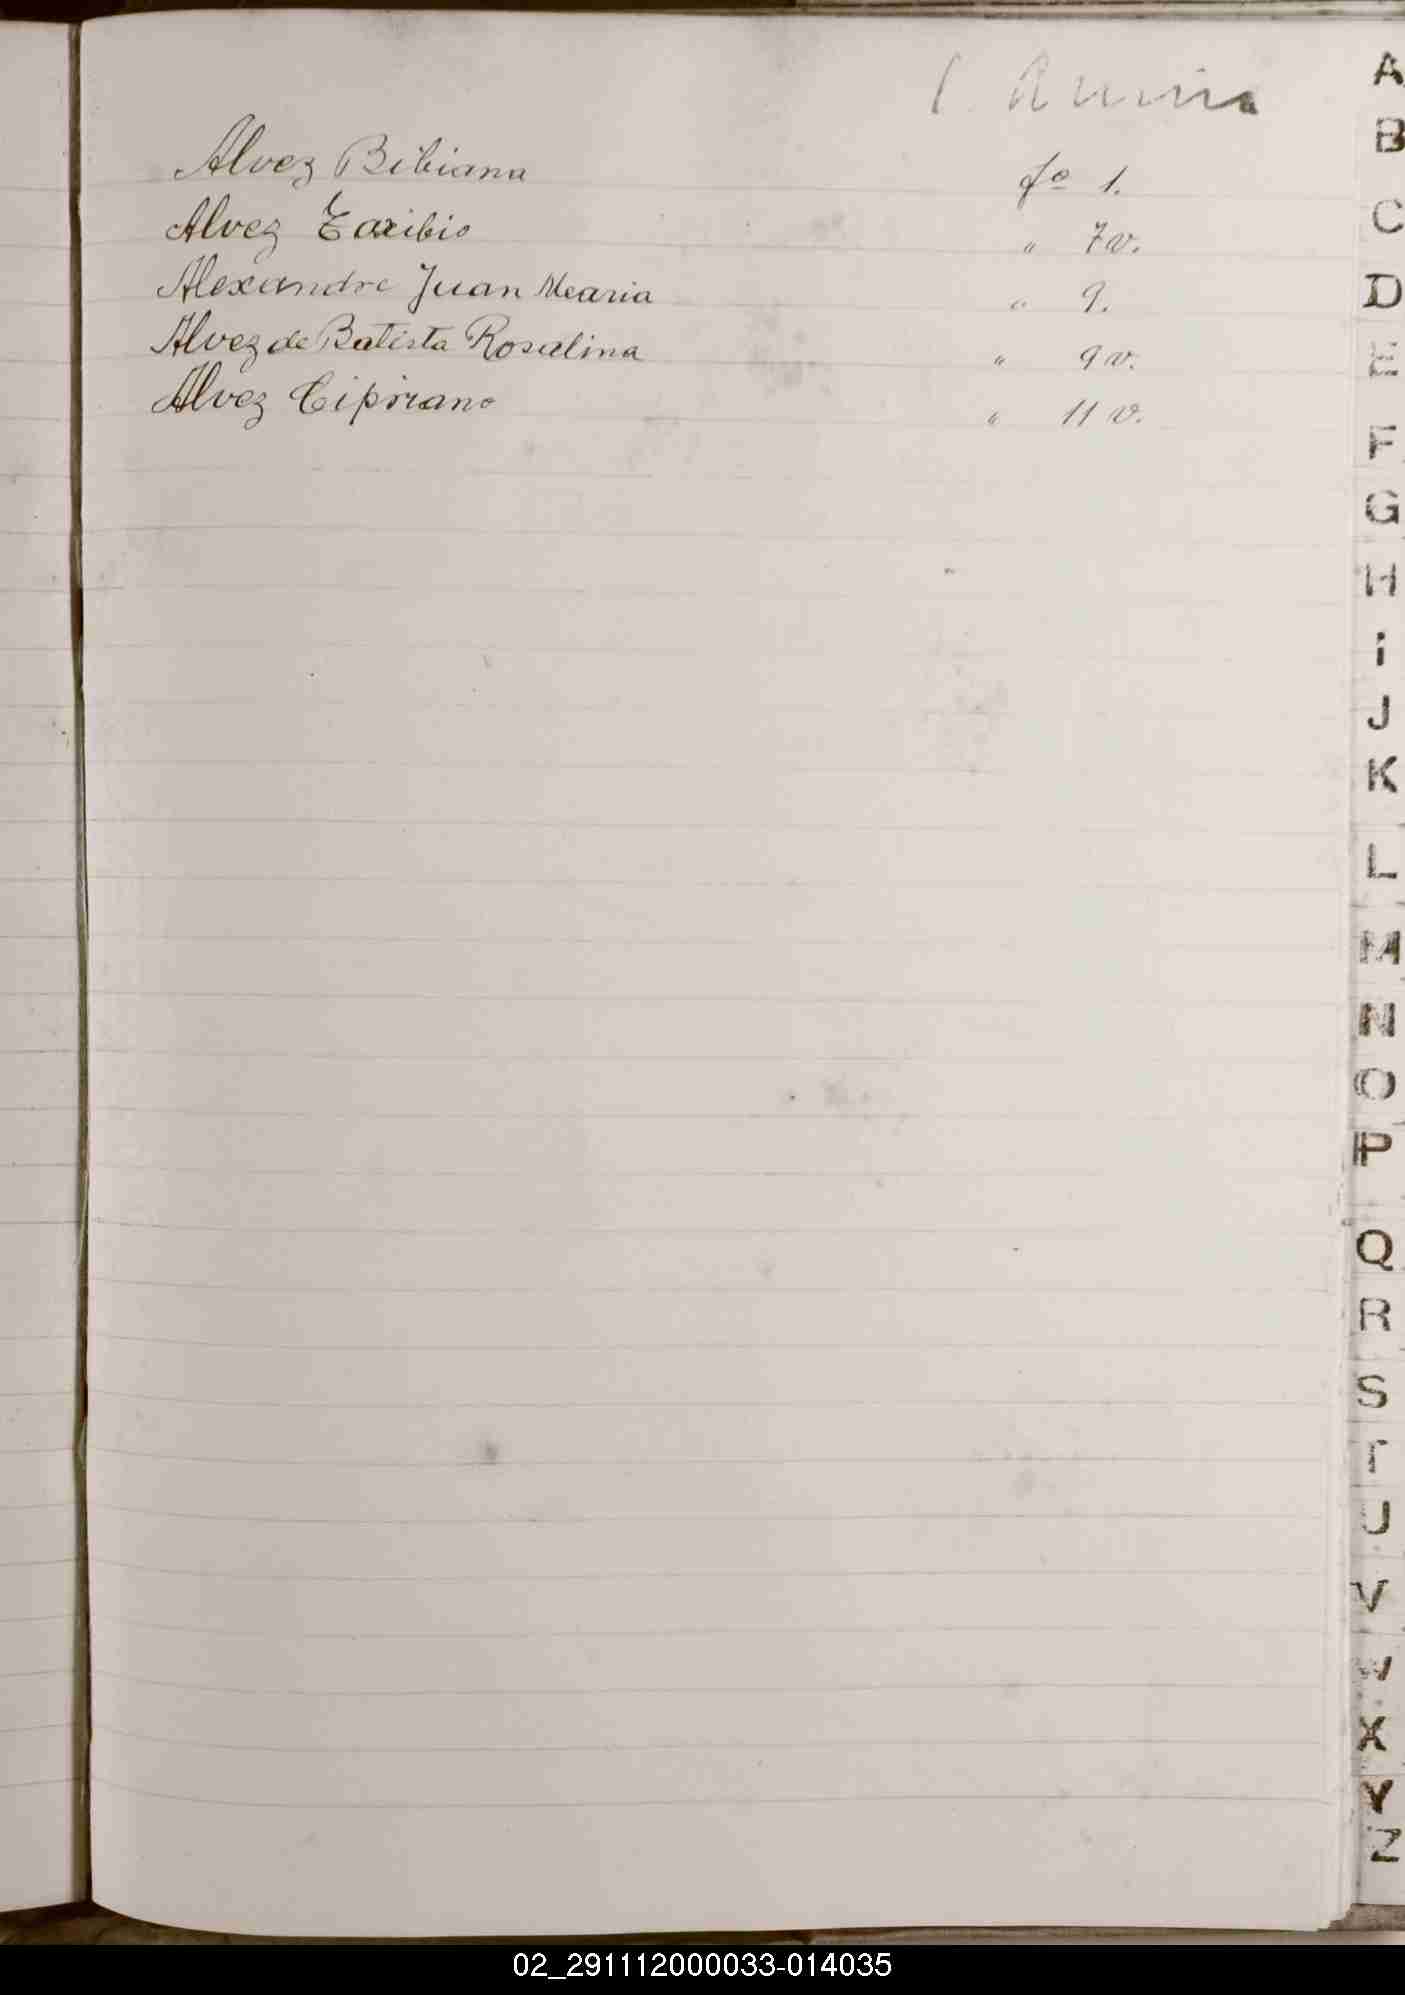 Alvez Bibiana fo 1.
Alvez Toribio " 7 v.
Alexandre Juan Maria " 9.
Alvez de Batista Rosalina " 9 v.
Alvez Cipriano " 11 v.
A
B
C
D
E
F
G
H
i
J
K
L
M
N
O
P
Q
R
S
T
U
V
W
X
Y
Z
02_291112000033-014035